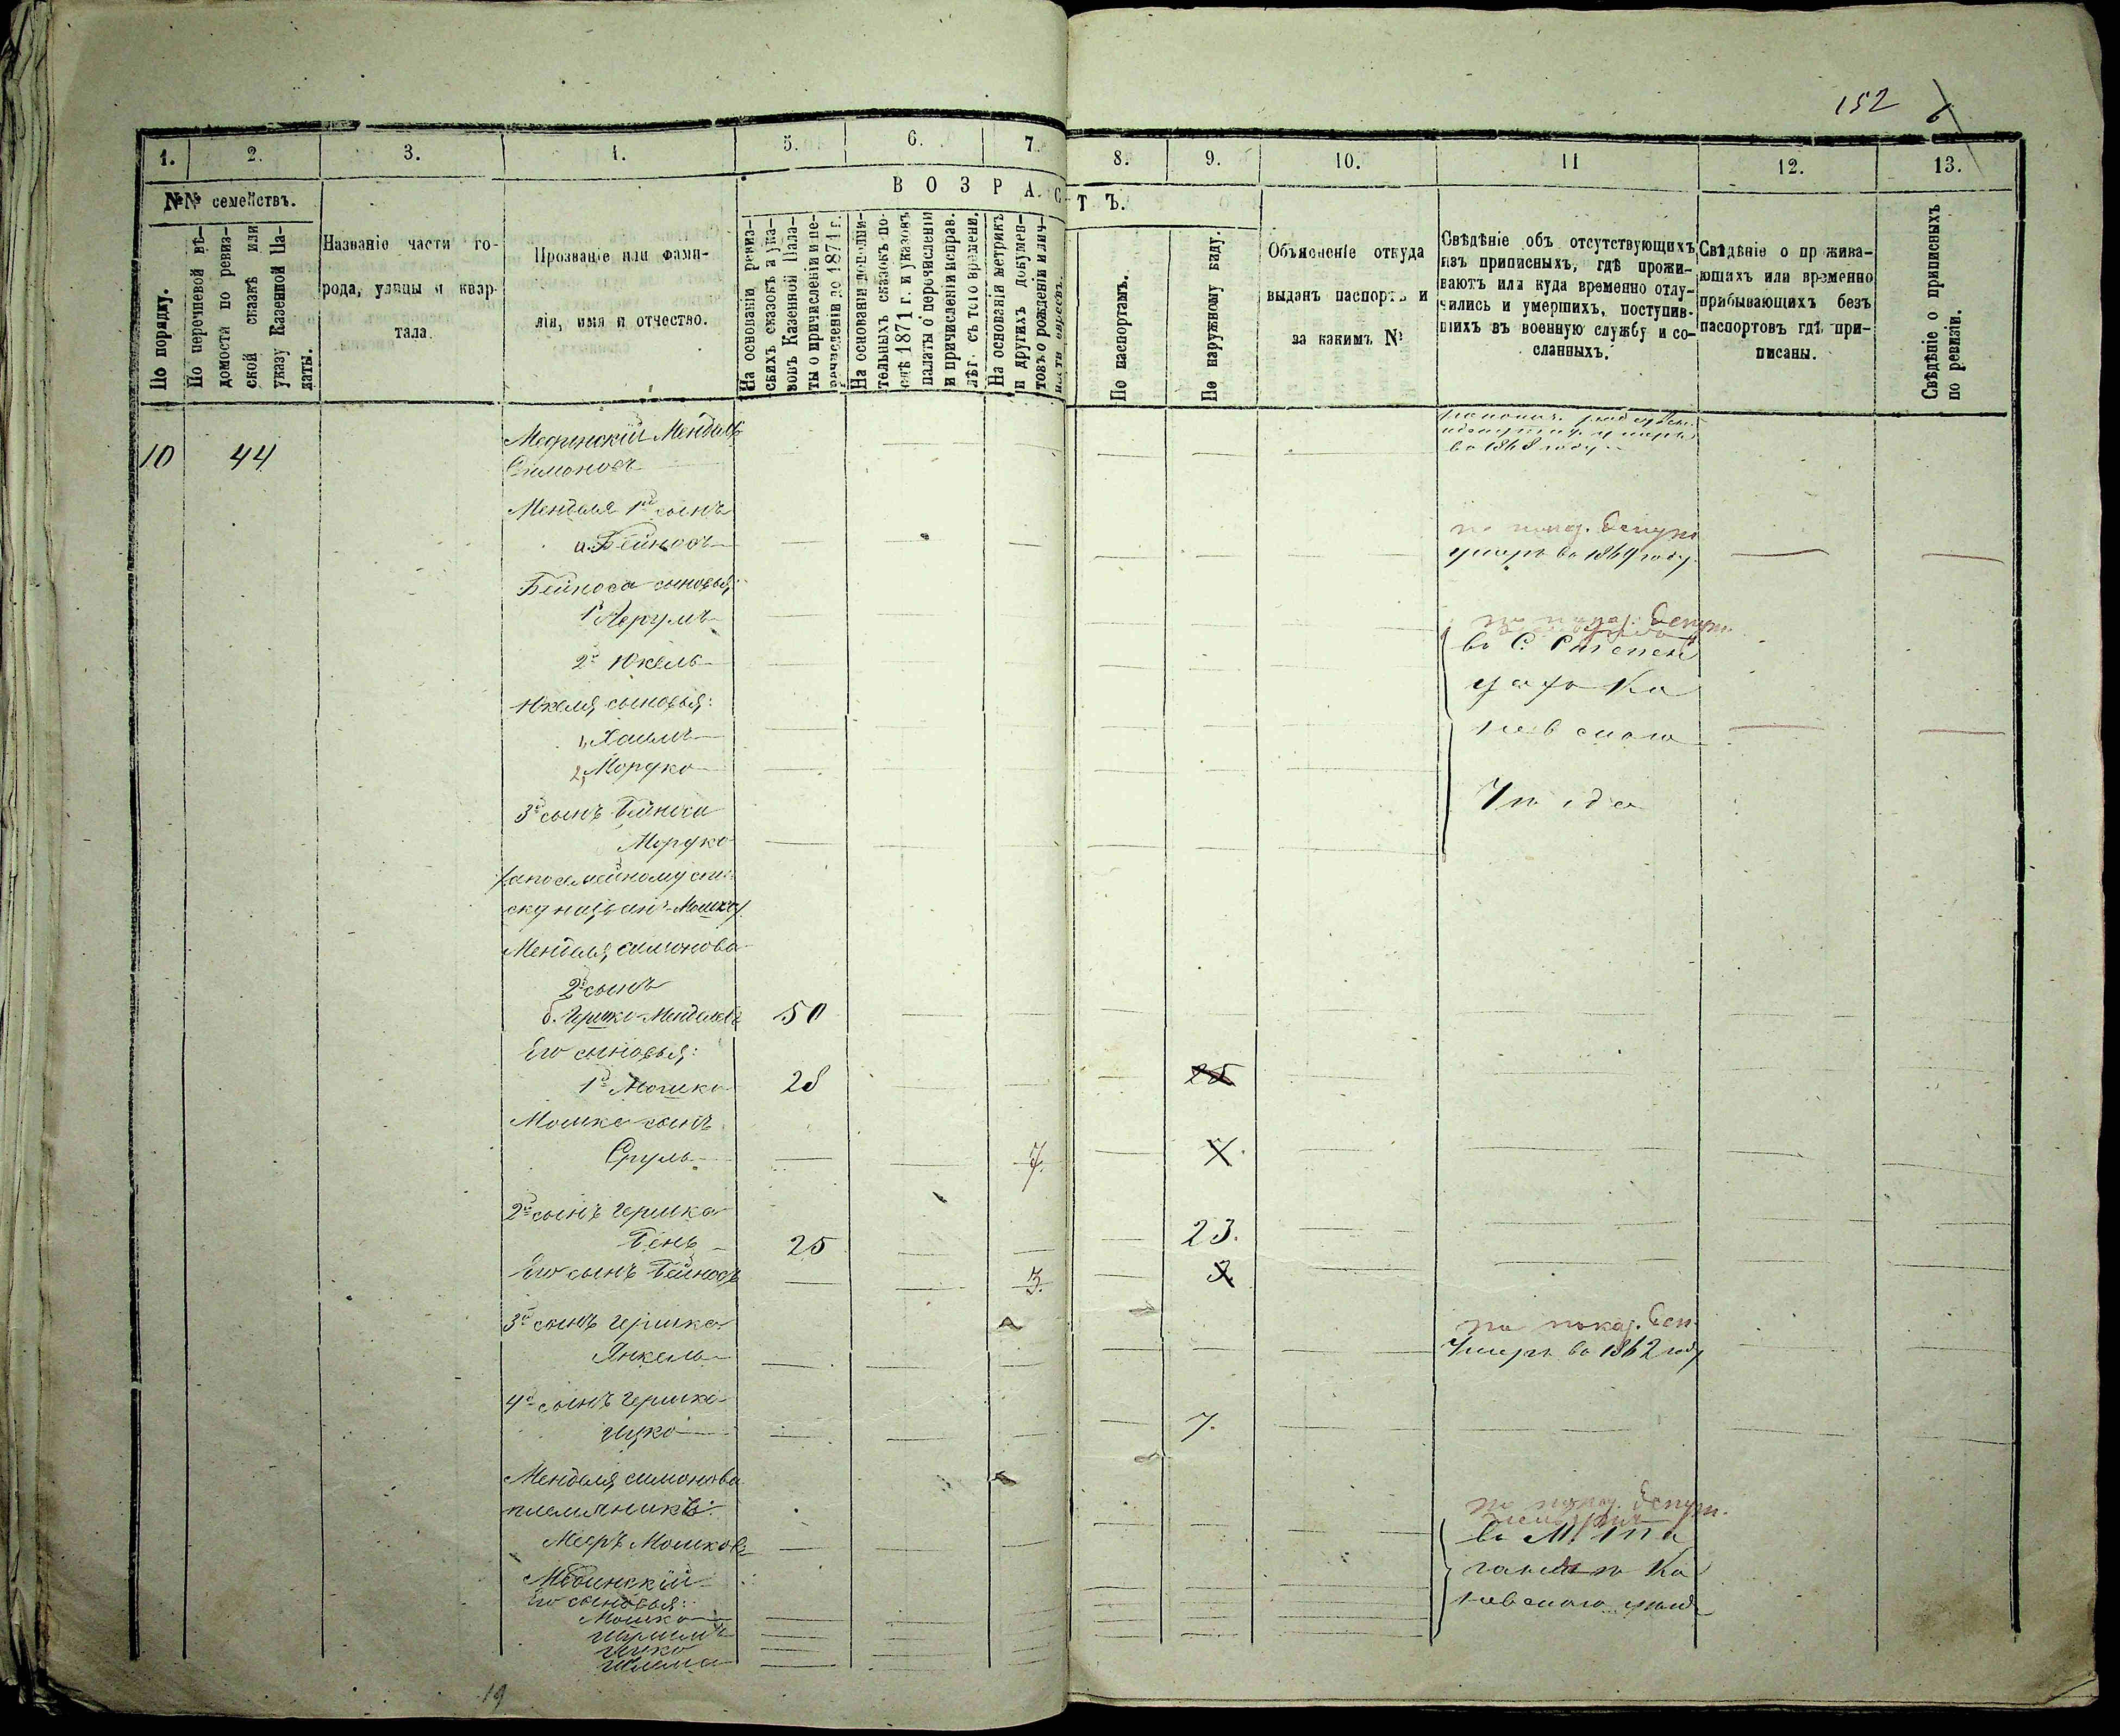 152
6
1.
2.
3.
4.
5.
6.
7.
8.
9.
10.
11
12.
13.
№№ семействъ.
ВОЗРАСТЪ.
По порядку.
По перечневой вѣ-
домости по ревиз-
ской сказкѣ или
указу Казенной Па-
латы.
Названіе части го-
рода, улицы и квар-
тала.
Прозваніе или фами-
лія, имя и отчество.
На основаніи ревиз-
скихъ сказокъ и ука-
зовъ Казенной Пала-
ты о причисленіи и пе-
речисленіи до 1871 г.
На основаніи дополни-
тельныхъ сказокъ по-
слѣ 1871 г. и указовъ
палаты о перечисленіи
и причисленіи исправ.
лѣт. съ того времени.
На основаніи метрикъ
и другихъ докумен-
товъ о рожденіи и лич-
ности евреевъ.
По паспортамъ.
По наружному виду.
Объясненіе откуда
выданъ паспортъ и
за какимъ №
Свѣдѣніе объ отсутствующихъ
изъ приписныхъ, гдѣ прожи-
ваютъ или куда временно отлу-
чились и умершихъ, поступив-
шихъ въ военную службу и со-
сланныхъ.
Свѣдѣніе о прожива-
ющихъ или временно
прибывающихъ безъ
паспортовъ гдѣ при-
писаны.
Свѣдѣніе о приписныхъ
по ревизіи.
10 44 Мендель
Симоновъ
во 1868 году
Менделя 1й сынъ
а. Бейносъ
по показ. депут.
умеръ во 1869 году.
Бейноса сыновья:
1й
2й Юкель
по показ. депут.
во С. Степен
Юкеля сыновья:
1, Хаимъ
2, Мордко
цахъ Ка
невскаго
Уѣзда
3й сынъ Бейноса
Мордко
/а по семейному спи-
ску названъ Мошко/
Менделя Симонова
2й сынъ
б. Гершко Менделевъ 50
Его сыновья:
1й Мошко 28 25
Мошка сынъ
Сруль 7. 7.
2й сынъ Гершка
Бень 25 23.
Его сынъ Бейносъ 3. 3
3й сынъ Гершка
Янкель
по показ. деп.
Умеръ во 1862 году
4й сынъ Гершка
Ицко 7.
Менделя Симонова
племянникъ:
Мееръ Мошковъ
по показ. депут.
во М.
Ка
невскаго уѣзда
Его сыновья:
Мошко
Ицко
Шлема
19